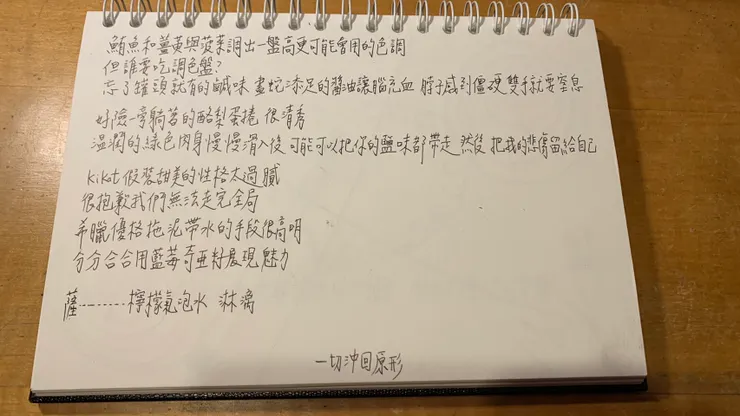 鮪魚和薑黃與菠菜調出一盤高更可能會用的色調
但誰要吃調色盤?
忘了罐頭就有的鹹味 畫蛇添足的醬油讓腦充血 脖子感到僵硬 雙手就要窒息
好險一旁躺著的酪梨蛋捲 很清秀
溫潤的綠色肉身慢慢滑入後 可能可以把你的鹽味都帶走 然後 把我的悲傷留給自己
kikat 假裝甜美的性格太過膩
很抱歉我們無法走完全局
希臘優格拖泥帶水的手段很高明
分分合合用藍莓奇亞籽展現魅力
薩--------檸檬氣泡水 淋漓
一切沖回原形